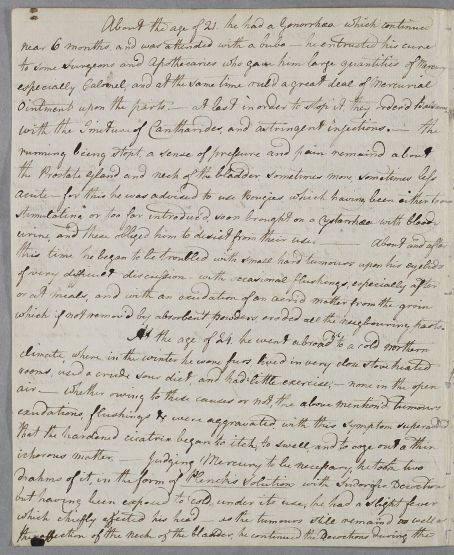 About the age of 21. he had a Gonorrhœa which continued
near 6 months, and was attended with a bubo — he entrusted his cure
to some Surgeons and Apothecaries who gave him large quantities of Mercury
especially Calomel, and at the same time rub'd a great deal of Mercurial
Ointment upon the parts: — at last in order to stop it they order'd
with the Tincture of Cantharides, and astringent injections. — the
running being stopt, a sense of pressure and pain remain'd about
the Prostate Gland and neck of the bladder sometimes more, sometimes less
acute — for this he was advised to use Bougies which having been either too
stimulating or too far introduced soon brought on a Cystirrhœa with bloody
urine, and these obliged him to desist from their use. — About and after
this time he began to be troubled with small hard tumours upon his eyelids
of very difficult discussion — with occasional flushings, especially after
or at meals, and with an exudation of an acrid matter from the groin
which if not remov'd by absorbent powders, eroded all the neighbouring parts.
At the age of 24. he went abroad to a cold northern
climate, where in the winter he wore furs, lived in very close stove heated
rooms, used a crude sour diet, and had little exercise, — none in the open
air. — whether owing to these causes or not, the above mention'd tumours
exudations, flushings &c were aggravated with this symptom superadded
that the hardened cicatrix began to itch, to swell, and to ooze out a thin
ichorous matter. — Judging Mercury to be necessary, he took two
drahms of it, in the form of Plenck's Solution with Sudorific Decoctions
but having been exposed to cold, under its use, he had a slight fever
which chiefly affected his head — as the tumours still remained as well as
the affection of the neck of the bladder, he continued the Decoctions during the